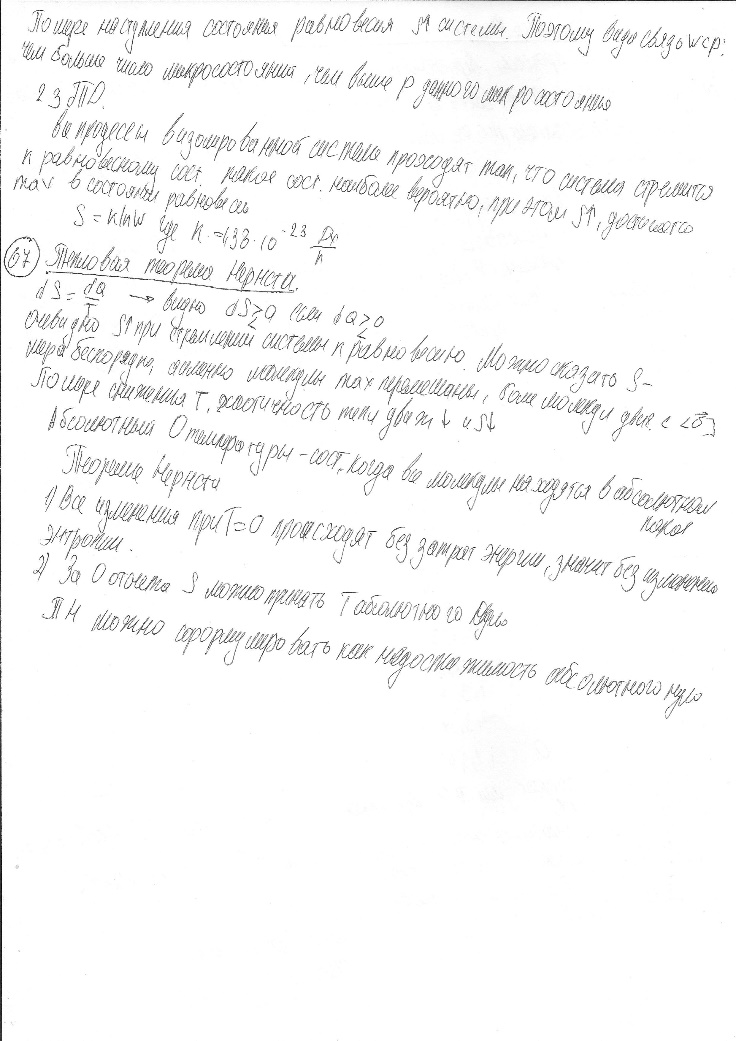 По мере наступления состояния равновесия S↑ системы. Поэтому видо связь W с p:
чем больше число микросостояний, тем выше p данного макросостояния
2 З ТD.
Все процессы в изолированной системе проходят так, что система стремится
к равновесному сост. какое сост. наиболее вероятно, при этом S↑, достигает
max в состоянии равновесия
S = k ln W где k = 1,38 · 10⁻²³ Дж/К
67 Тепловая теорема Нернста.
dS = dQ/T → видно dS ≥ 0 если dQ ≥ 0
Очевидно S↑ при стремлении системы к равновесию. Можно сказать S –
мера беспорядка, молекулы max перемешаны, молекулы движ. с
По мере снижения T, хаотичность движ ↓ и S↓
Абсолютный 0 температуры – сост, когда все молекулы находятся в абсолютном
покое
Теорема Нернста
1) Все изменения при T=0 происходят без затрат энергии, значит без изменения
энтропии.
2) За 0 отсчета S можно принять T абсолютного нуля
ТН можно сформулировать как недостижимость абсолютного нуля